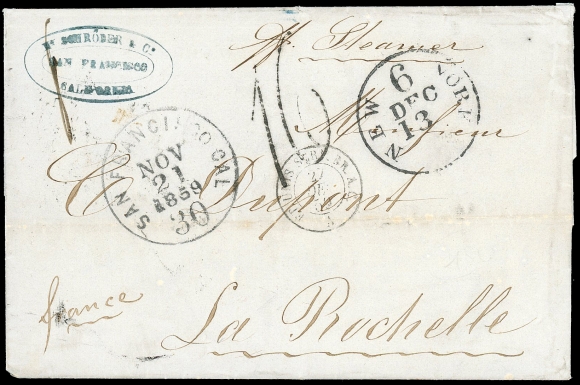 Hy. SCHRÖDER & Co.
SAN FRANCISCO
CALIFORNIA
Pr. Steamer
NEW YORK
6
DEC
13
16
Monsieur
SAN FRANCISCO CAL
NOV
21
1859
30
C. Dupont
france
La Rochelle